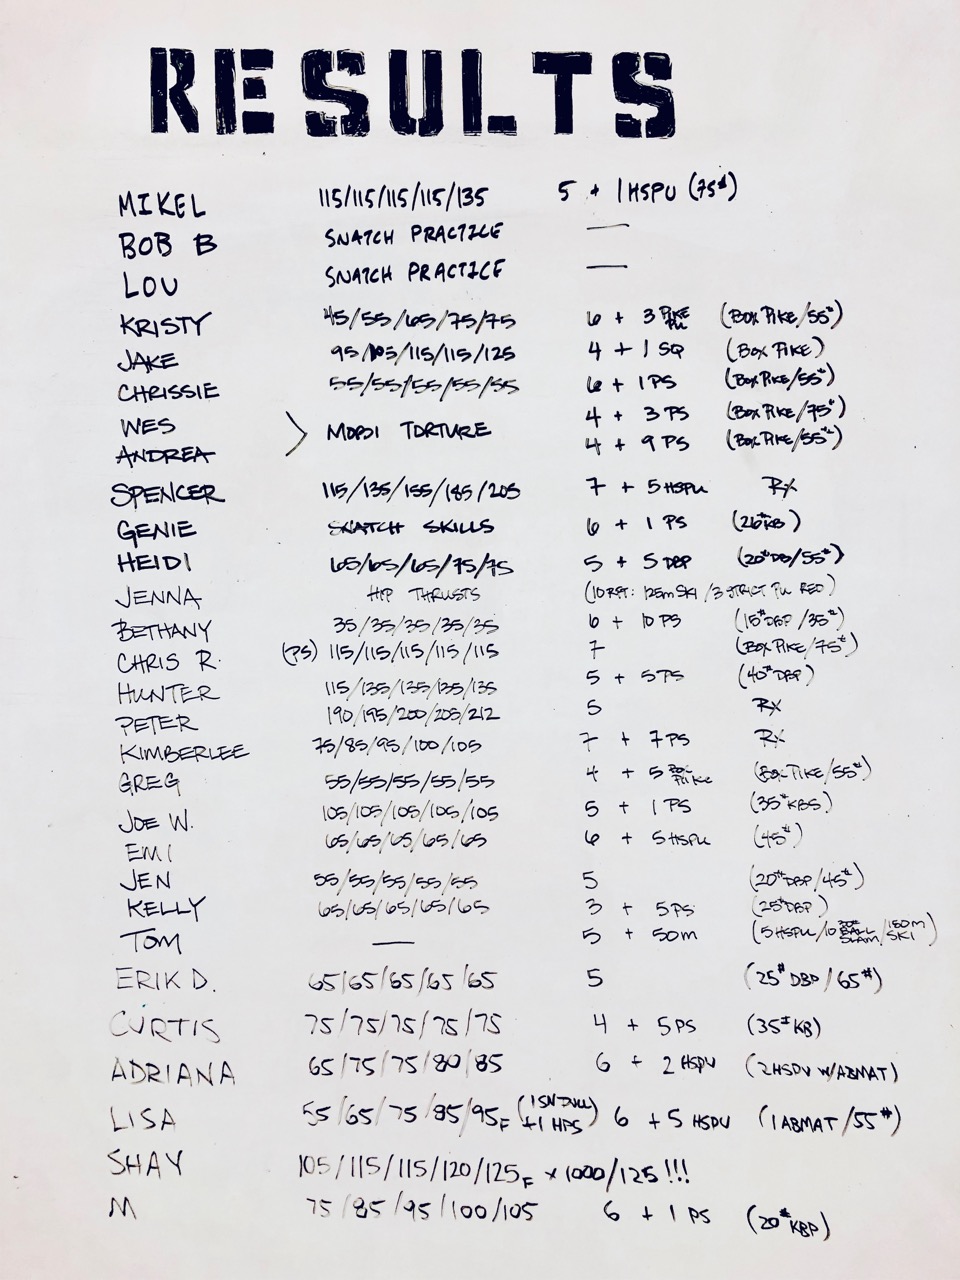 RESULTS
MIKEL 115/115/115/115/135 5 + 1 HSPU (75#)
BOB B SNATCH PRACTICE —
LOU SNATCH PRACTICE —
KRISTY 45/55/65/75/75 6 + 3 PIKE PU (BOX PIKE/55#)
JAKE 95/105/115/115/125 4 + 1 SQ (BOX PIKE)
CHRISSIE 55/55/55/55/55 6 + 1 PS (BOX PIKE/55#)
WES 4 + 3 PS (BOX PIKE/75#)
> MOBI TORTURE
ANDREA 4 + 9 PS (BOX PIKE/55#)
SPENCER 115/135/155/185/205 7 + 5 HSPU RX
GENIE SNATCH SKILLS 6 + 1 PS (26#KB)
HEIDI 65/65/65/75/75 5 + 5 DBP (20#DB/55#)
JENNA HIP THRUSTS (10 RFT: 125m SKI /3 STRICT PU RED)
BETHANY 35/35/35/35/35 6 + 10 PS (15#DBP/35#)
CHRIS R. (PS) 115/115/115/115/115 7 (BOX PIKE/75#)
HUNTER 115/135/135/135/135 5 + 5 PS (40#DBP)
PETER 190/195/200/205/212 5 RX
KIMBERLEE 75/85/95/100/105 7 + 7 PS RX
GREG 55/55/55/55/55 4 + 5 BOX PIKE (BOX PIKE/55#)
JOE W. 105/105/105/105/105 5 + 1 PS (35#KBS)
EMI 65/65/65/65/65 6 + 5 HSPU (45#)
JEN 55/55/55/55/55 5 (20#DBP/45#)
KELLY 65/65/65/65/65 3 + 5 PS (25#DBP)
TOM — 5 + 50m (5 HSPU/10 BALL SLAM/150M SKI)
ERIK D. 65/65/65/65/65 5 (25#DBP/65#)
CURTIS 75/75/75/75/75 4 + 5 PS (35#KB)
ADRIANA 65/75/75/80/85 6 + 2 HSPU (2HSPU W/ABMAT)
LISA 55/65/75/85/95F +1 HPS) 6 + 5 HSPU (1 ABMAT/55#)
SHAY 105/115/115/120/125F x 1000/125 !!!
M 75/85/95/100/105 6 + 1 PS (20#KBP)